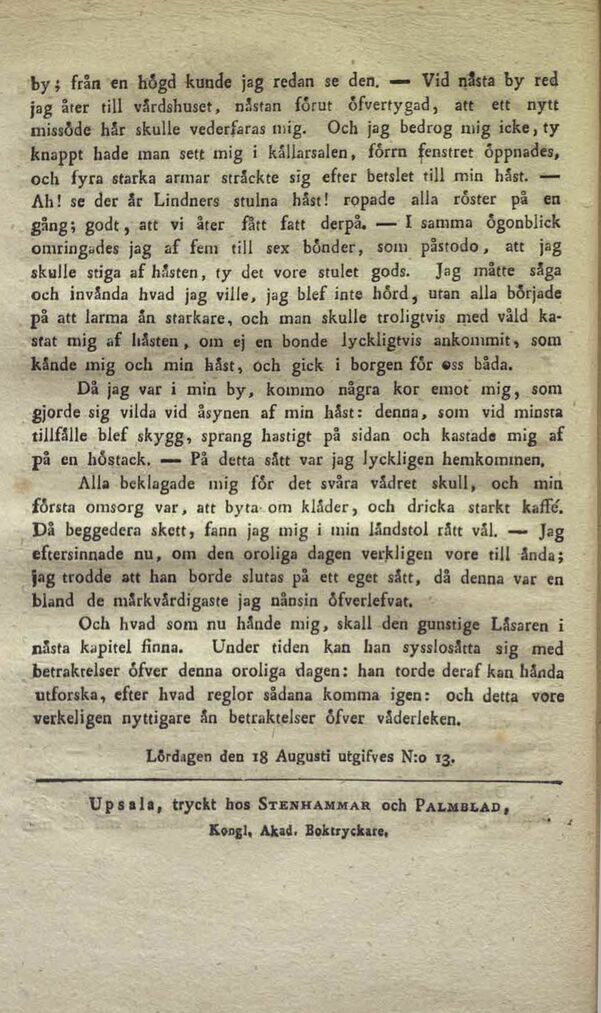 by; från en högd kunde jag redan se den. — Vid nästa by red
jag åter till värdshuset, nästan förut öfvertygad, att ett nytt
missöde här skulle vederfaras mig. Och jag bedrog mig icke, ty
knappt hade man sett mig i källarsalen, förrn fenstret öppnades,
och fyra starka armar sträckte sig efter betslet till min häst. —
Ah! se der är Lindners stulna häst! ropade alla röster på en
gång; godt, att vi åter fått fatt derpå. — I samma ögonblick
omringades jag af fem till sex bönder, som påstodo, att jag
skulle stiga af hästen, ty det vore stulet gods. Jag måtte säga
och invända hvad jag ville, jag blef inte hörd, utan alla började
på att larma än starkare, och man skulle troligtvis med våld ka-
stat mig af hästen, om ej en bonde lyckligtvis ankommit, som
kände mig och min häst, och gick i borgen för oss båda.
Då jag var i min by, kommo några kor emot mig, som
gjorde sig vilda vid åsynen af min häst: denna, som vid minsta
tillfälle blef skygg, sprang hastigt på sidan och kastade mig af
på en höstack. — På detta sätt var jag lyckligen hemkommen.
Alla beklagade mig för det svåra vädret skull, och min
första omsorg var, att byta om kläder, och dricka starkt kaffé.
Då beggedera skett, fann jag mig i min ländstol rätt väl. — Jag
eftersinnade nu, om den oroliga dagen verkligen vore till ända;
jag trodde att han borde slutas på ett eget sätt, då denna var en
bland de märkvärdigaste jag nånsin öfverlefvat.
Och hvad som nu hände mig, skall den gunstige Läsaren i
nästa kapitel finna. Under tiden kan han sysslosätta sig med
betraktelser öfver denna oroliga dagen: han torde deraf kan hända
utforska, efter hvad reglor sådana komma igen: och detta vore
verkeligen nyttigare än betraktelser öfver väderleken.
Lördagen den 18 Augusti utgifves N:o 13.
Upsala, tryckt hos STENHAMMAR och PALMBLAD,
Kongl. Akad. Boktryckare.